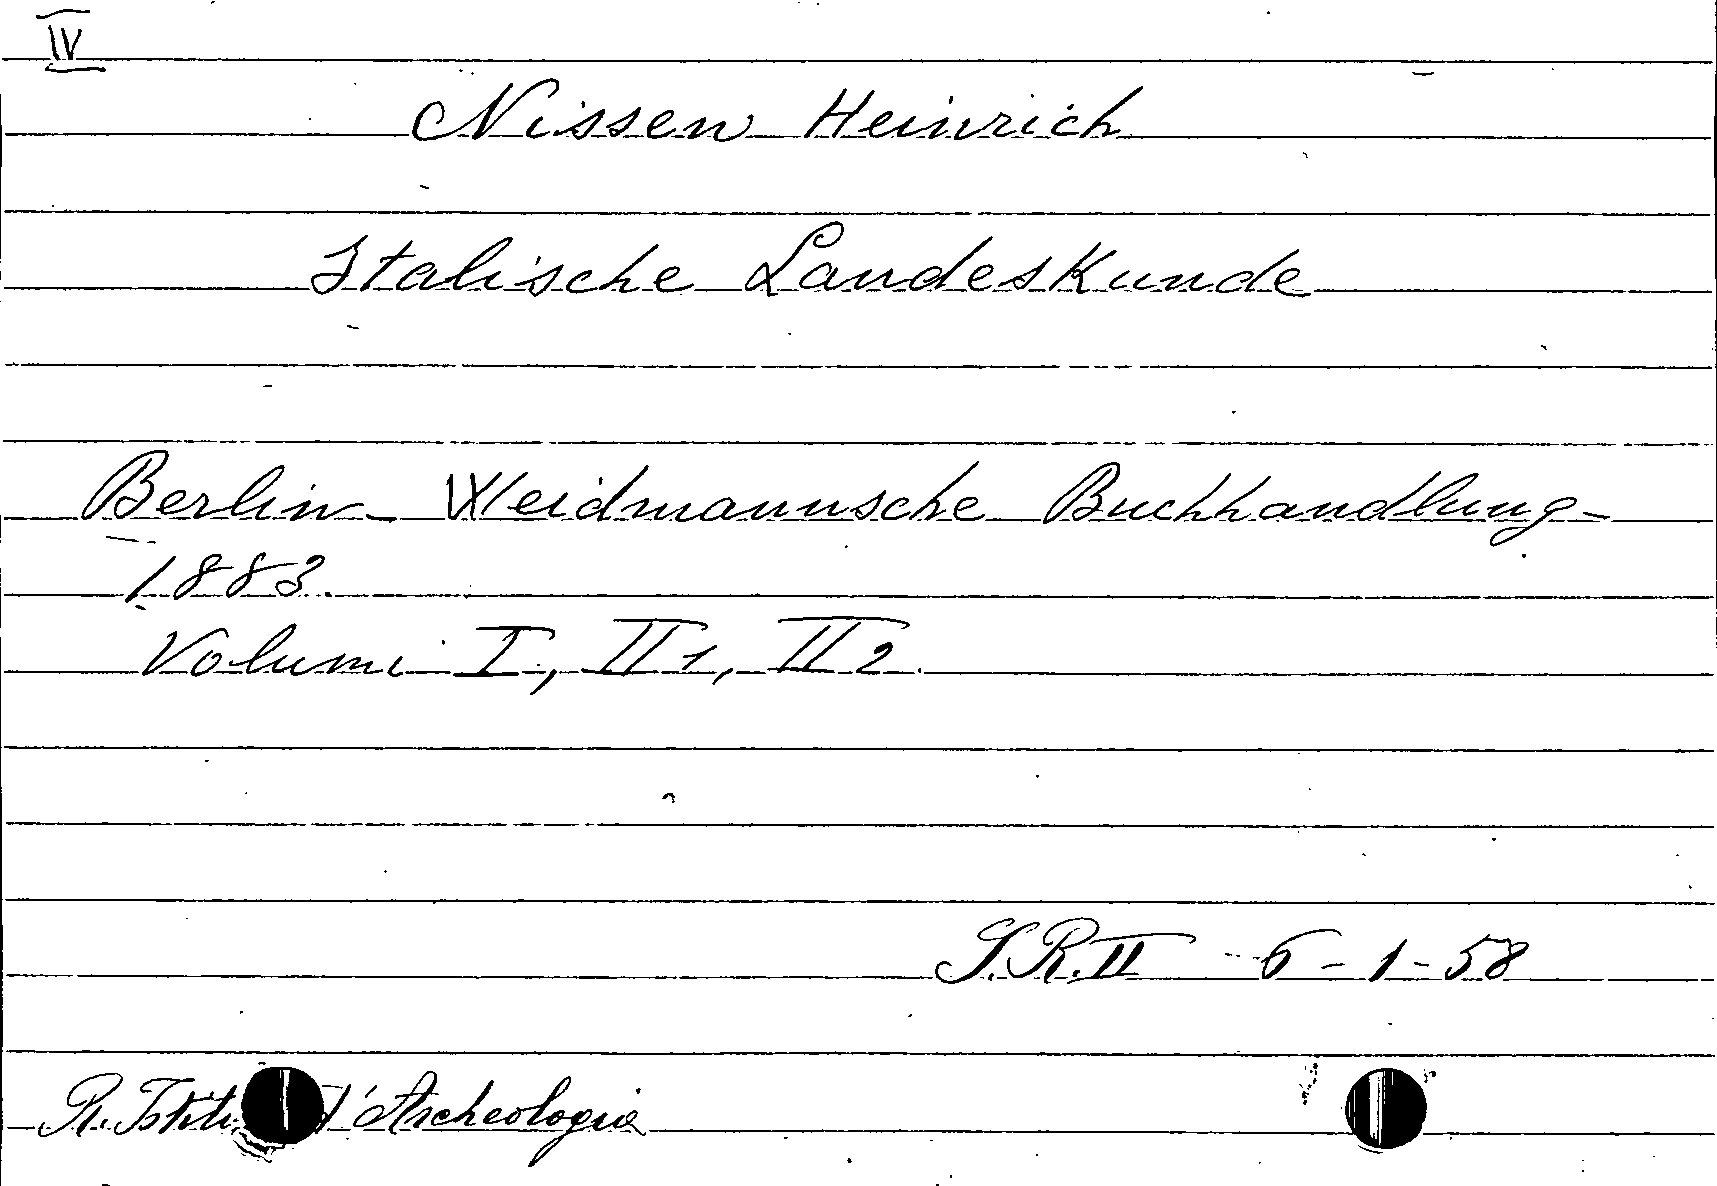 IV
Nissen Heinrich
Italische Landeskunde
Berlin - Weidmannsche Buchhandlung -
1883.
Volumi I, II 1, II 2.
S.R. II - 6 - 1 - 58
R. d'Archeologia